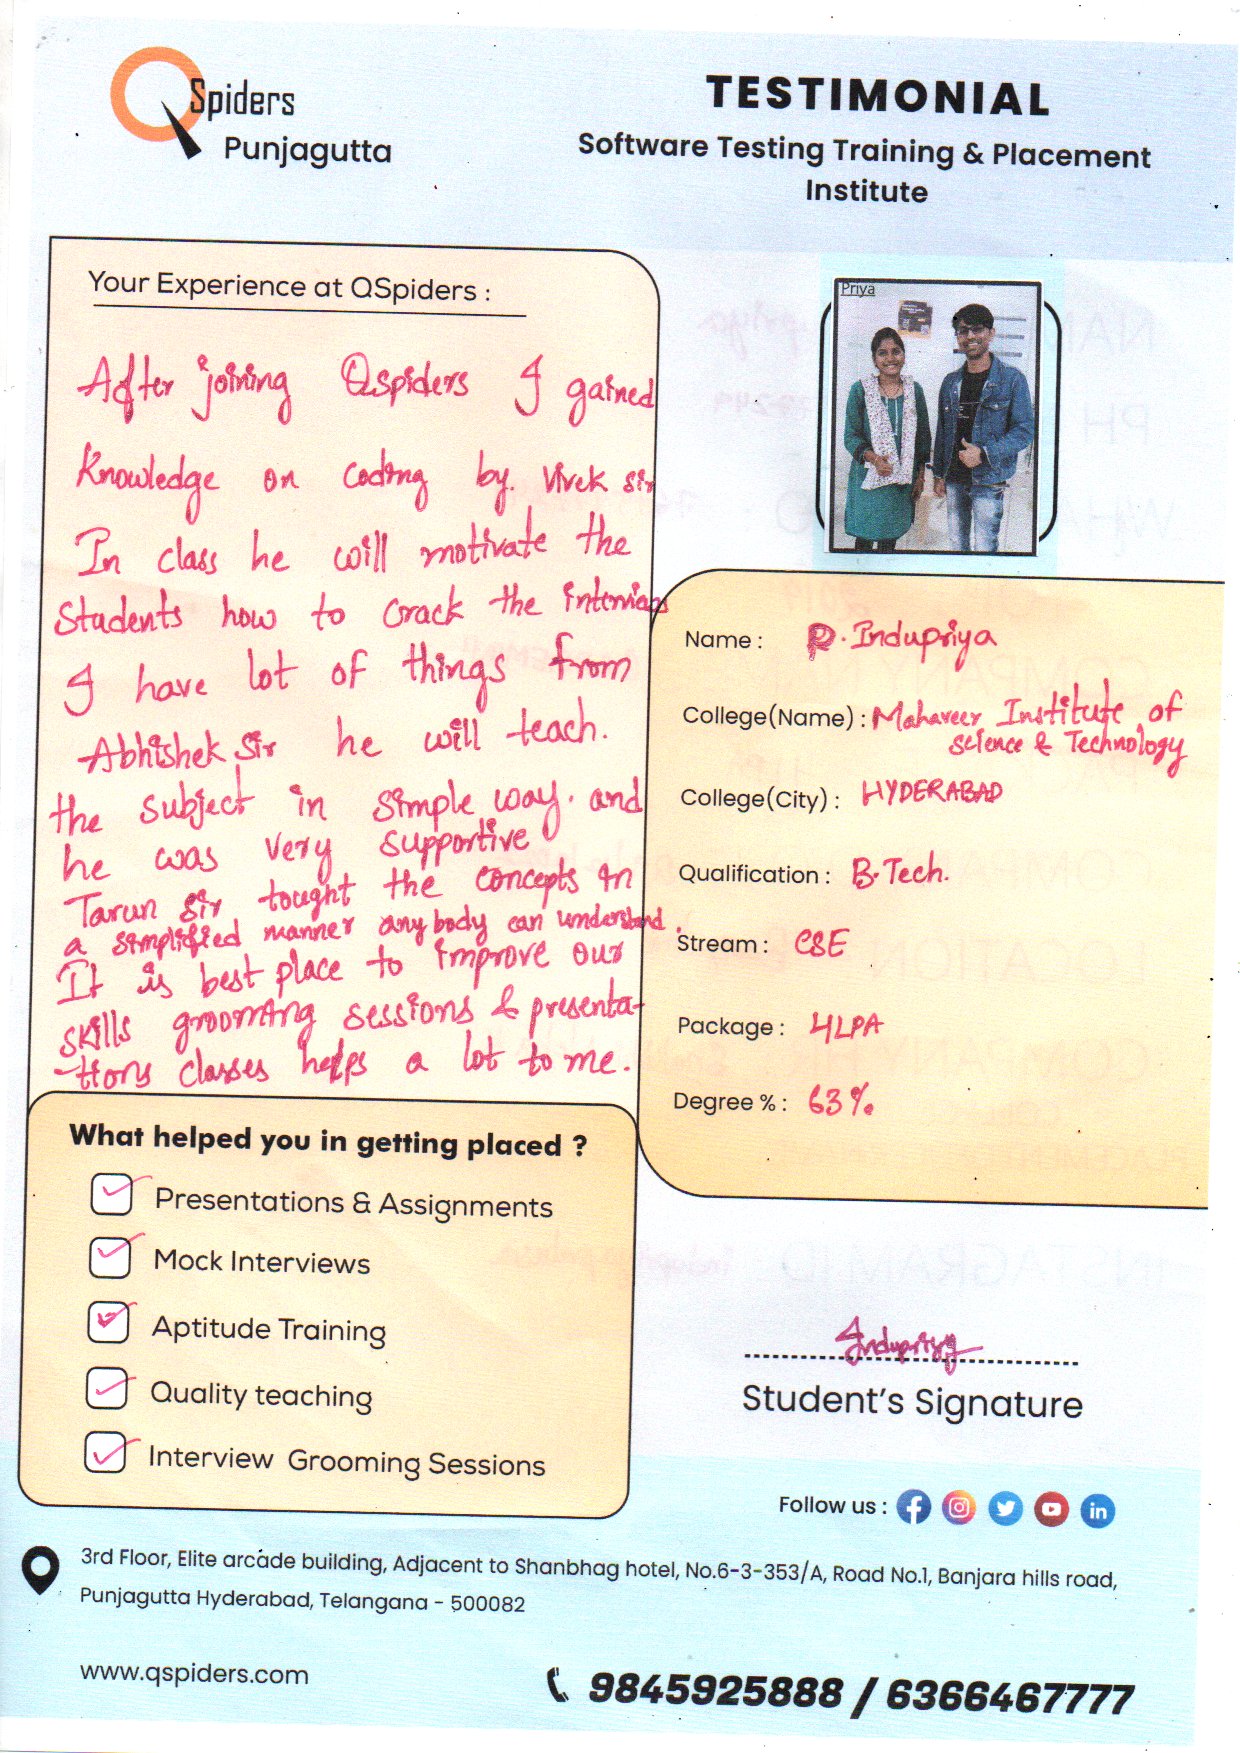 QSpiders
Punjagutta
TESTIMONIAL
Software Testing Training & Placement
Institute
Your Experience at QSpiders :
After joining Qspiders I gained
Knowledge on coding by. Vivek sir
In class he will motivate the
Students how to crack the
I have lot of things from
Abhishek Sir he will teach.
the subject in simple way. and
he was very supportive
Tarun Sir tought the concepts in
a simplified manner any body can understand.
It is best place to improve our
skills grooming sessions & presenta-
-tions classes helps a lot to me.
Priya
Name : P. Indupriya
College(Name) : Mahaveer Institute of
Science & Technology
College(City) : HYDERABAD
Qualification : B.Tech.
Stream : CSE
Package : 4LPA
Degree % : 63%
What helped you in getting placed ?
Presentations & Assignments
Mock Interviews
Aptitude Training
Quality teaching
Interview Grooming Sessions
Indupriya
Student's Signature
Follow us :
3rd Floor, Elite arcade building, Adjacent to Shanbhag hotel, No.6-3-353/A, Road No.1, Banjara hills road,
Punjagutta Hyderabad, Telangana - 500082
www.qspiders.com
9845925888 / 6366467777